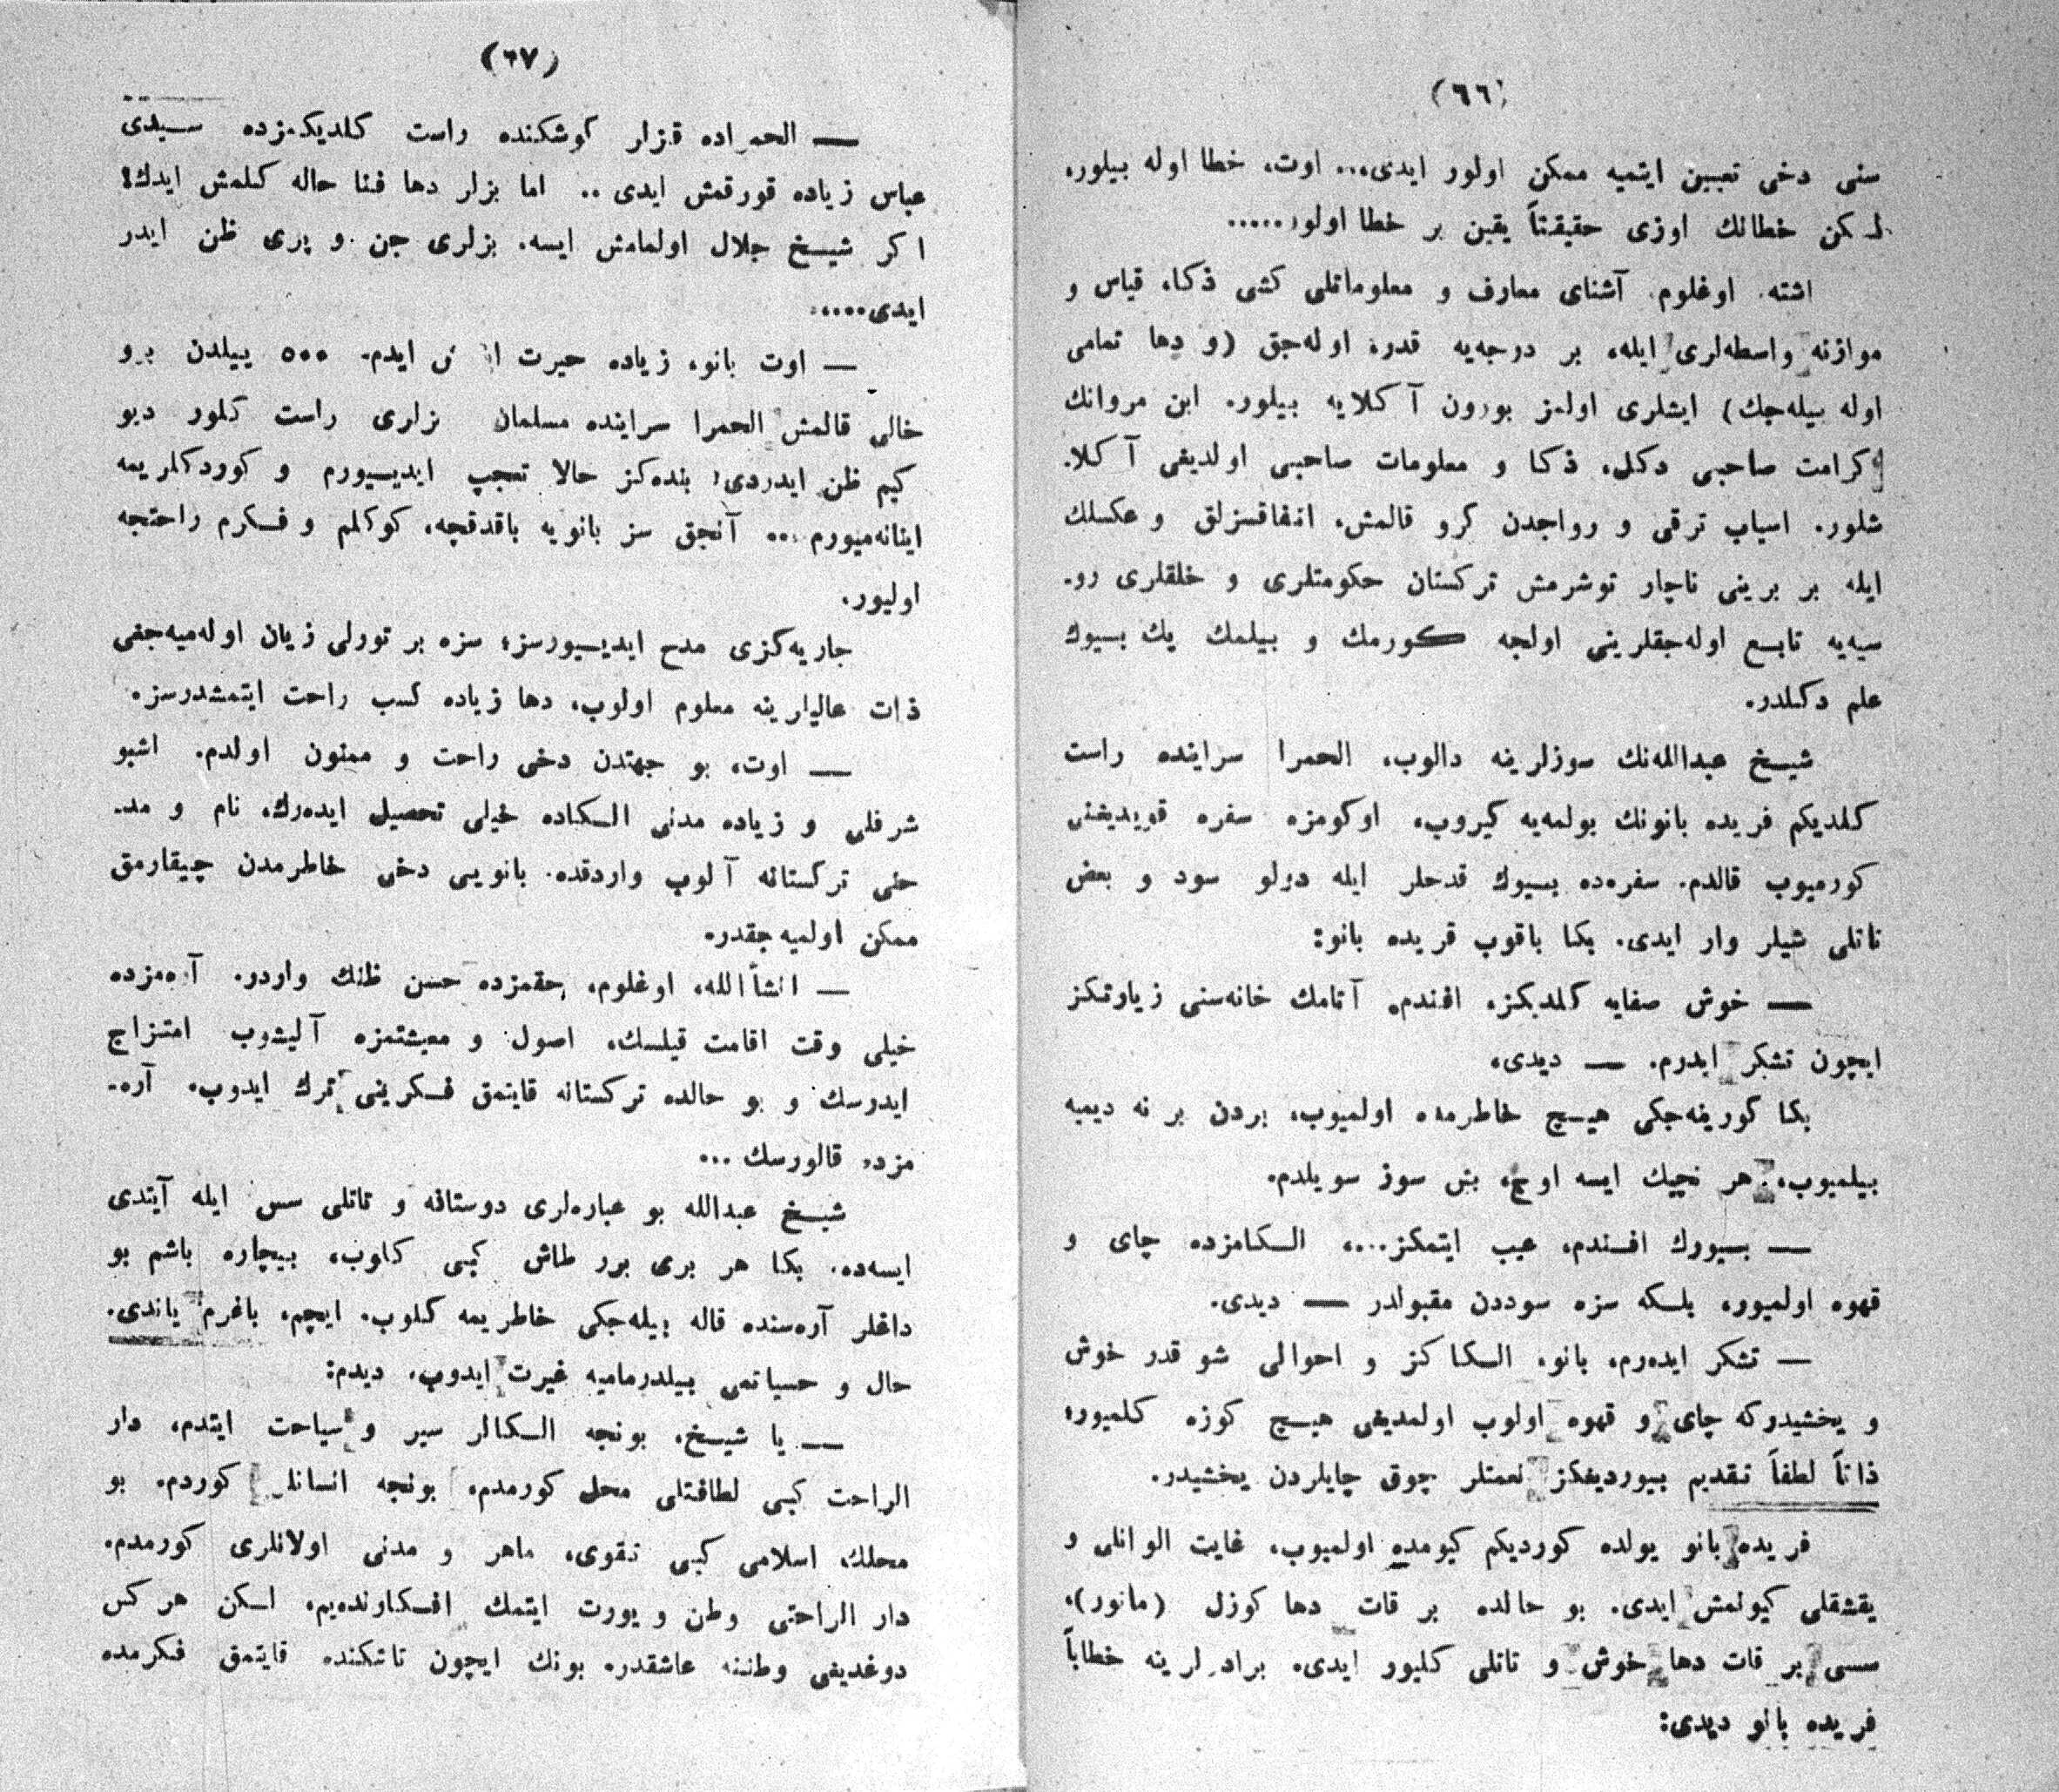 (٦٦)
سنی دخی تعیین ایتمیه ممکن اولور ایدی... اوت، خطا اوله بیلور،
لکن خطانك اوزی حقیقتاً یقین بر خطا اولور.....
اشته. اوغلوم. آشنای معارف و معلوماتلی کشی ذکا، قیاس و
موازنه واسطه‌لری ایله، بر درجه‌یه قدر، اوله‌جق (و دها تمامی
اوله بیله‌جك) ایشلری اولمز بورون آکلایه بیلور. ابن مروانك
کرامت صاحبی دکل، ذکا و معلومات صاحبی اولدیغی آکلا-
شلور. اسباب ترقی و رواجدن کرو قالمش، اتفاقسزلق و عکسلك
ایله بر برینی ناچار توشرمش ترکستان حکومتلری و خلقلری رو-
سیه‌یه تابع اوله‌جقلرینی اولجه کورمك و بیلمك یك بیوك
علم دکلدر.
شیخ عبدالله‌نك سوزلرینه دالوب، الحمرا سراینده راست
کلدیکم فریده بانونك بولمه‌یه کیروب، اوکومزه سفره قویدیغنی
کورمیوب قالدم. سفره‌ده بیوك قدحلر ایله دولو سود و بعض
تاتلی شیلر وار ایدی. بکا باقوب فریده بانو:
— خوش صفایه کلدیکز، افندم. آتامك خانه‌سنی زیارتکز
ایچون تشکر ایدرم. — دیدی.
بکا کورینه‌جکی هیچ خاطرمده اولمیوب، بردن بر نه دیمیه
بیلمیوب، هر نچیك ایسه اوچ، بش سوز سویلدم.
— بیورك افندم، عیب ایتمکز...، الکامزده چای و
قهوه اولمیور، بلکه سزه سوددن مقبولدر — دیدی.
— تشکر ایده‌رم، بانو. الکاکز و احوالی شو قدر خوش
و یخشیدرکه چای و قهوه اولوب اولمدیغی هیچ کوزه کلمیور؛
ذاتاً لطفاً تقدیم بیوردیغکز نعمتلر چوق چایلردن یخشیدر.
فریده بانو یولده کوردیکم کیومده اولمیوب، غایت الوانلی و
یقشقلی کیولمش ایدی. بو حالده بر قات دها کوزل (مانور)،
سسی بر قات دها خوش و تاتلی کلیور ایدی. برادرلرینه خطاباً
فریده بانو دیدی:
(٦٧)
— الحمراده قزلر کوشکنده راست کلدیکمزده سیدی
عباس زیاده قورقمش ایدی .. اما بزلر دها فنا حاله کلمش ایدك!
اکر شیخ جلال اولمامش ایسه. بزلری جن و پری ظن ایدر
ایدی.....
— اوت بانو، زیاده حیرت ایدم. ٥٠٠ ییلدن برو
خالی قالمش الحمرا سراینده مسلمان راست کلور دیو
کیم ظن ایدردی؛ بنده‌کز حالا تعجب ایدییورم و کوردکلریمه
اینانه‌میورم ... آنجق سز بانویه باقدقچه، کوکلم و فکرم راحتجه
اولیور.
جاریه‌کزی مدح ایدییورسز؛ سزه بر تورلی زیان اوله‌میه‌جغی
ذات عالیلرینه معلوم اولوب، دها زیاده کسب راحت ایتمشدرسز.
— اوت، بو جهتدن دخی راحت و ممنون اولدم. اشبو
شرفلی و زیاده مدنی الکاده خیلی تحصیل ایده‌رك، نام و مد-
حنی ترکستانه آلوب واردقده. بانویی دخی خاطرمدن چیقارمق
ممکن اولمیه‌جقدر.
— انشأالله، اوغلوم، حقمزده حسن ظنك واردر. آره‌مزده
خیلی وقت اقامت قیلسك، اصول و معیشتمزه آلیشوب امتزاج
ایدرسك و بو حالده ترکستانه قایتمق فکرینی ترك ایدوب. آره-
مزده قالورسك ...
شیخ عبدالله بو عباره‌لری دوستانه و تاتلی سس ایله آیتدی
ایسه‌ده. بکا هر بری برر طاش کبی کلوب، بیچاره باشم بو
داغلر آره‌سنده قاله بیله‌جکی خاطریمه کلوب. ایچم، باغرم یاندی.
حال و حسیاتمی بیلدرمامیه غیرت ایدوب. دیدم:
— یا شیخ. بونجه الکالر سیر و سیاحت ایتدم، دار
الراحت کبی لطافتلی محل کورمدم، بونجه انسانلر کوردم. بو
محلك، اسلامی کبی تقوی، ماهر و مدنی اولانلری کورمدم.
دار الراحتی وطن و یورت ایتمك افکارنده‌یم. لکن هرکس
دوغدیغی وطننه عاشقدر. بونك ایچون تاشکنده قایتمق فکرمده